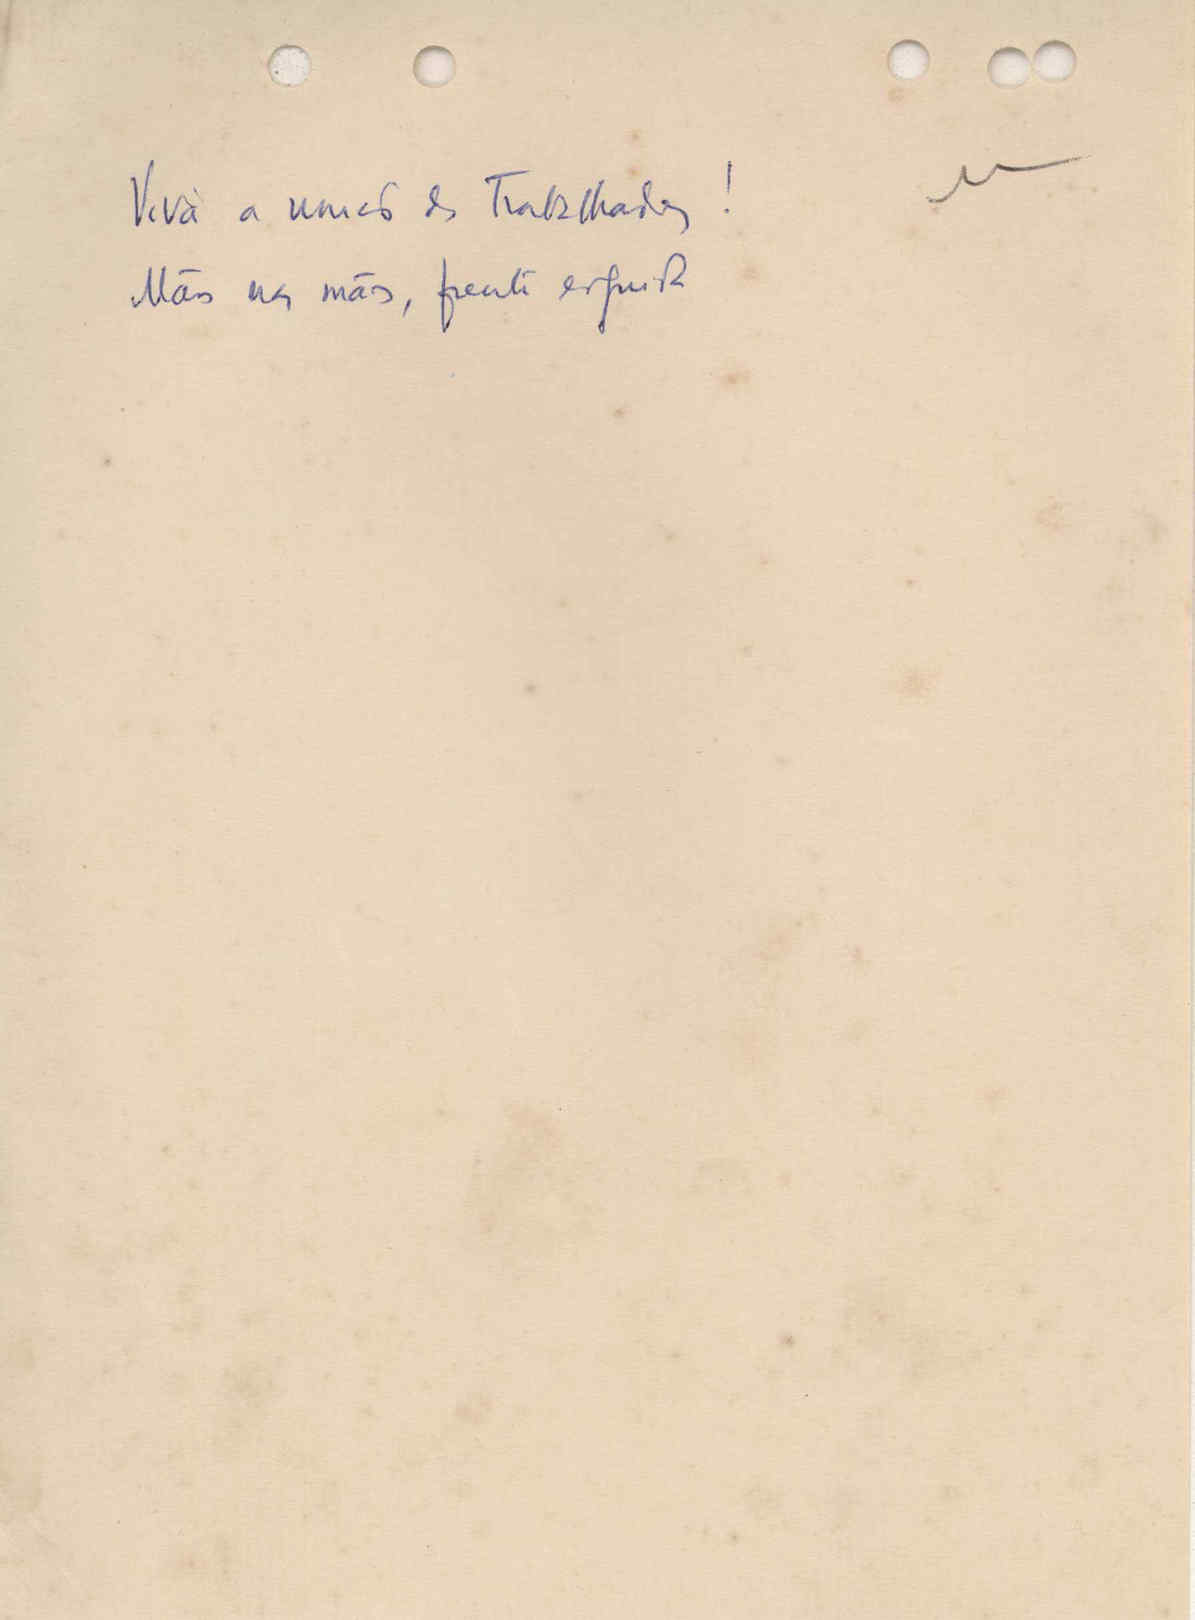 Viva a união dos Trabalhadores !
Mãos nas mãos, frente erguida